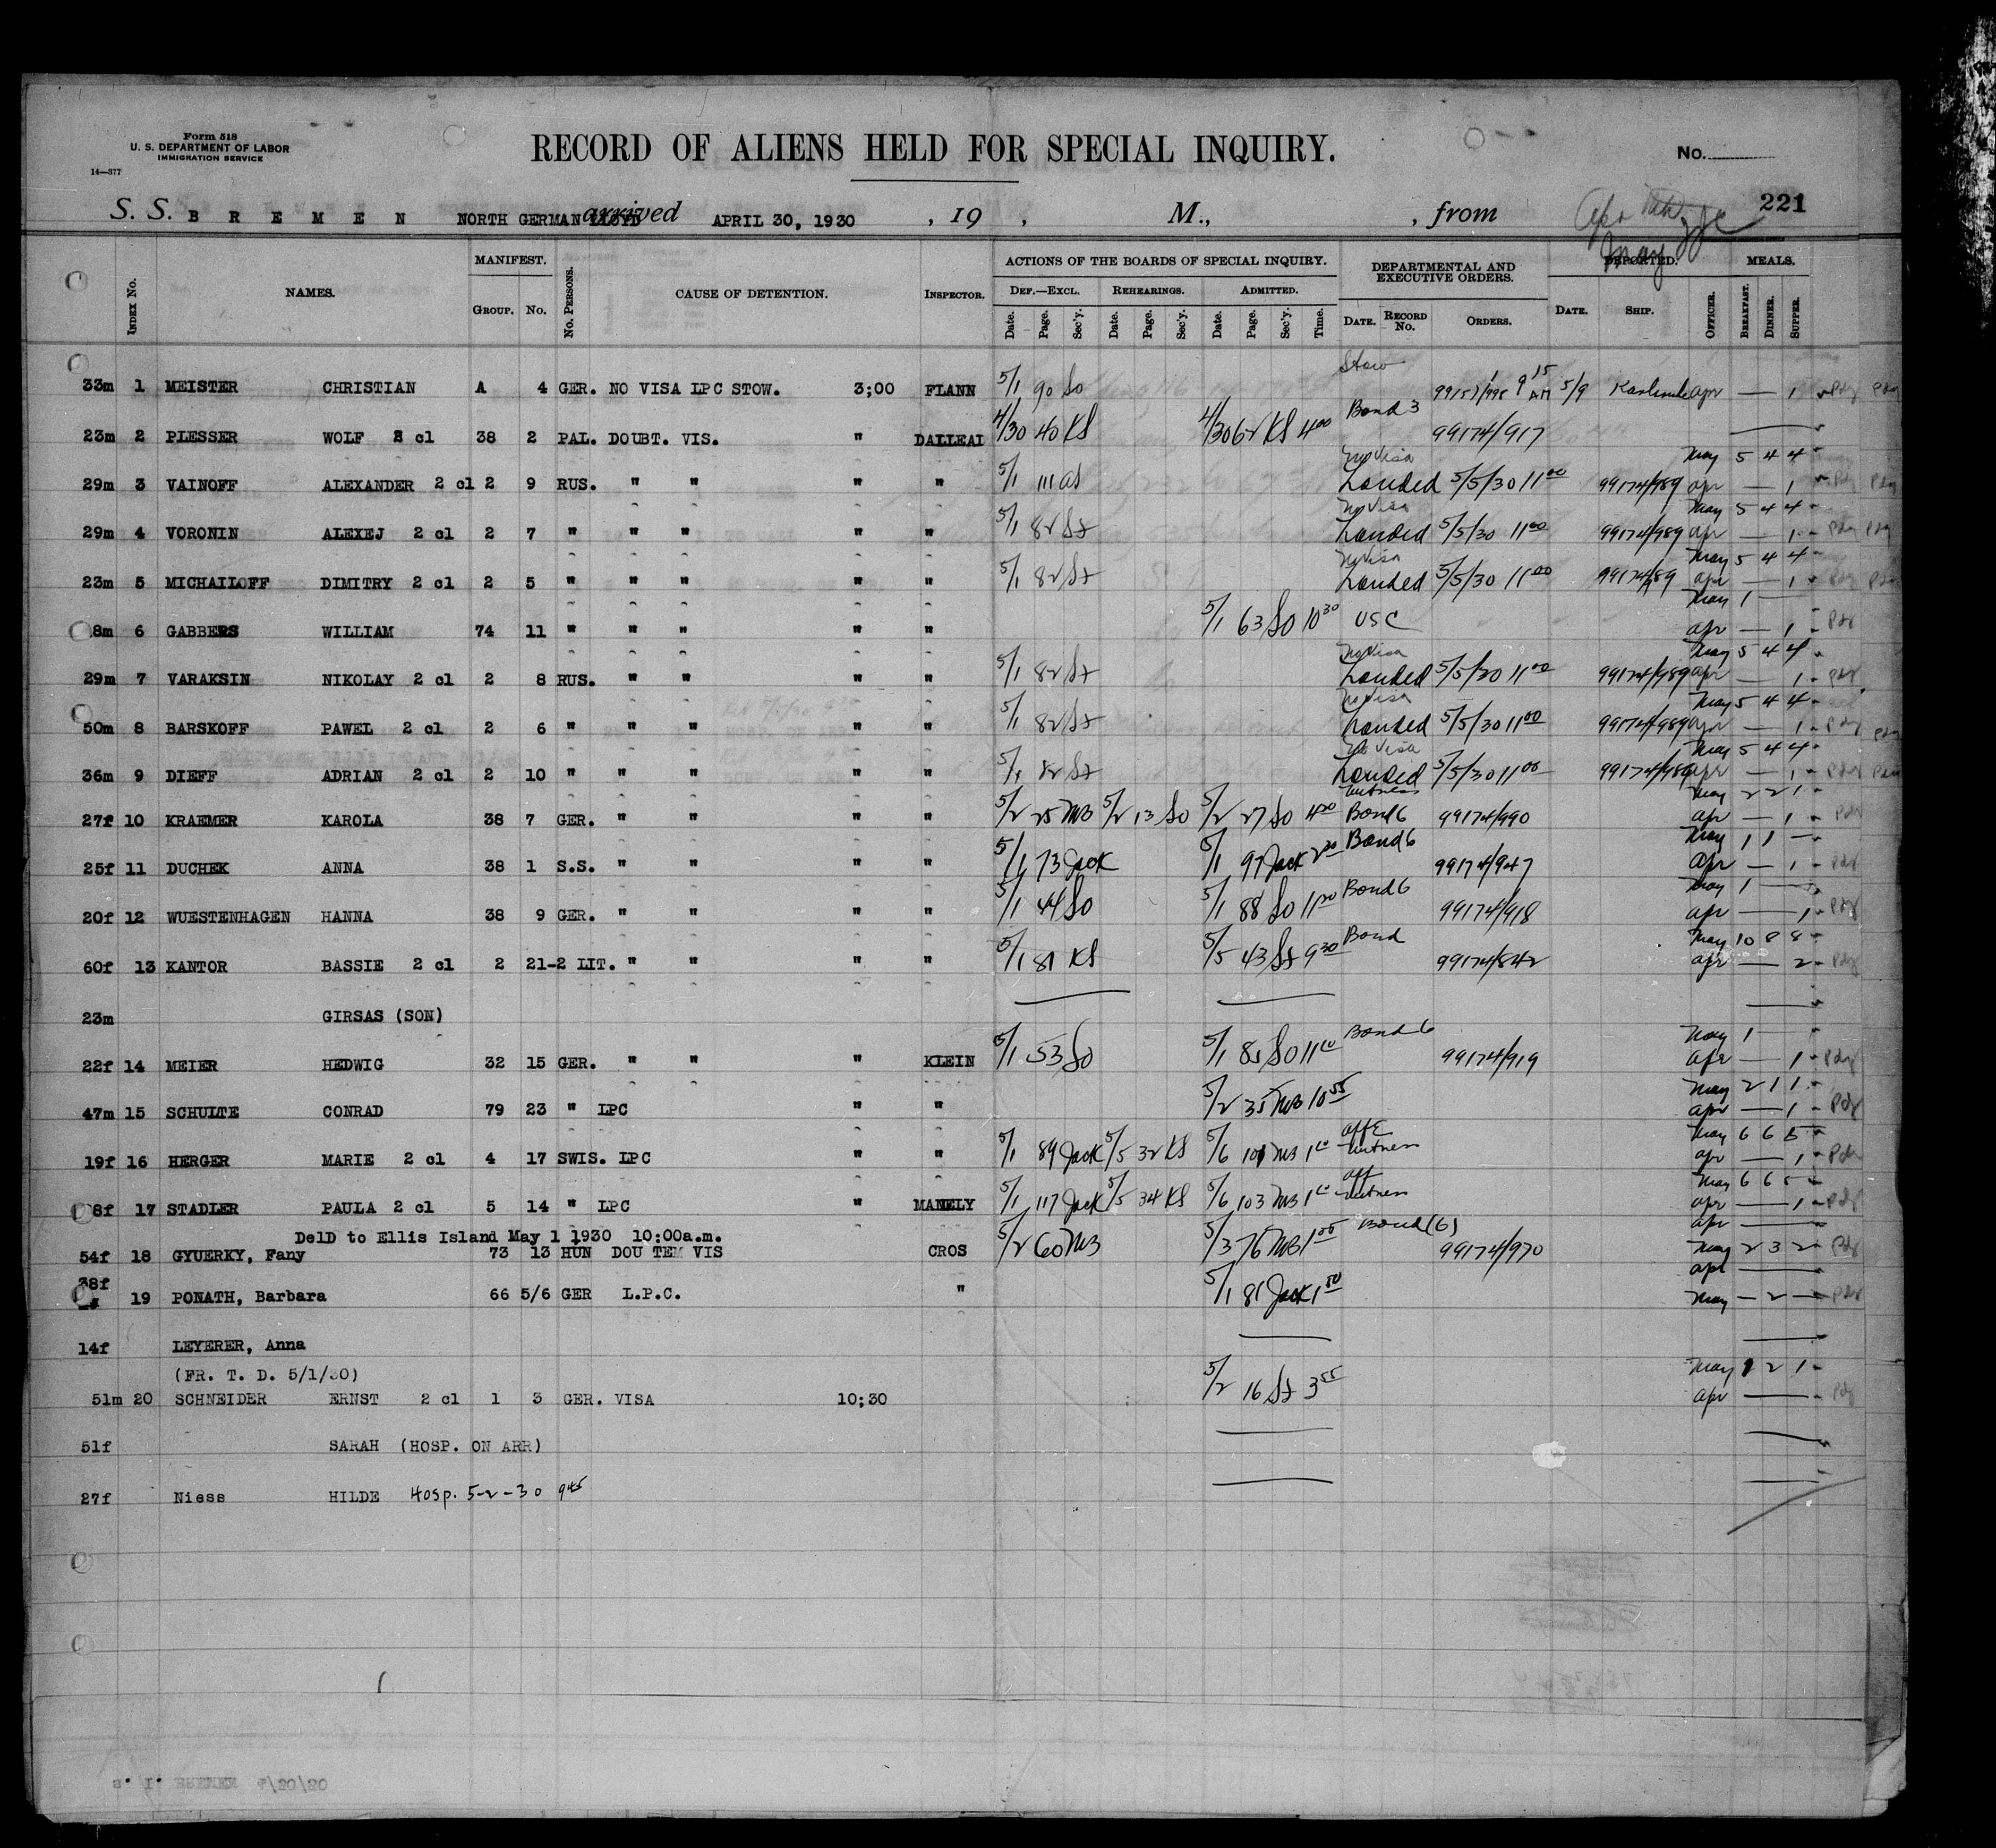 Form 518
U. S. DEPARTMENT OF LABOR
IMMIGRATION SERVICE
14—377
RECORD OF ALIENS HELD FOR SPECIAL INQUIRY.
No.
221
S. S. B R E M E N NORTH GERMAN LLOYD arrived APRIL 30, 1930 , 19 , M., , from
May
INDEX No. NAMES. MANIFEST. GROUP. No. No. PERSONS. CAUSE OF DETENTION. INSPECTOR. ACTIONS OF THE BOARDS OF SPECIAL INQUIRY. DEF.—EXCL. REHEARINGS. ADMITTED. DEPARTMENTAL AND EXECUTIVE ORDERS. DEPORTED. MEALS.
Date. Page. Sec'y. Date. Page. Sec'y. Date. Page. Sec'y. Time. DATE. RECORD No. ORDERS. DATE. SHIP. OFFICER. BREAKFAST. DINNER. SUPPER.
Stow
33m 1 MEISTER CHRISTIAN A 4 GER. NO VISA LPC STOW. 3;00 FLANN 5/1 90 So 9 15 AM 5/9 Karlsruhe apr — 1
Bond 3
23m 2 PLESSER WOLF 2 cl 38 2 PAL. DOUBT. VIS. " DALLEAI 4/30 40 KS 4/30 62 KS 4 00 99174/917
No Visa May 5 4 4
29m 3 VAINOFF ALEXANDER 2 cl 2 9 RUS. " " " " 5/1 111 as Landed 5/5/30 11 00 99174/989 apr — 1
No Visa May 5 4 4
29m 4 VORONIN ALEXEJ 2 cl 2 7 " " " " " 5/1 82 St Landed 5/5/30 11 00 99174/989 apr — 1
No Visa May 5 4 4
23m 5 MICHAILOFF DIMITRY 2 cl 2 5 " " " " " 5/1 82 St Landed 5/5/30 11 00 99174/989 apr — 1
May 1
8m 6 GABBERS WILLIAM 74 11 " " " " " 5/1 63 So 10 30 USC apr — 1
No Visa May 5 4 4
29m 7 VARAKSIN NIKOLAY 2 cl 2 8 RUS. " " " " 5/1 82 St Landed 5/5/30 11 00 99174/989 apr — 1
No Visa May 5 4 4
50m 8 BARSKOFF PAWEL 2 cl 2 6 " " " " " 5/1 82 St Landed 5/5/30 11 00 99174/989 apr — 1
No Visa May 5 4 4
36m 9 DIEFF ADRIAN 2 cl 2 10 " " " " " 5/1 82 St Landed 5/5/30 11 00 99174/989 apr — 1
Witness May 2 2 1
27f 10 KRAEMER KAROLA 38 7 GER. " " " " 5/2 25 MB 5/2 13 So 5/2 27 So 4 20 Bond 6 99174/990 apr — 1
Bond 6 May 1 1 —
25f 11 DUCHEK ANNA 38 1 S.S. " " " " 5/1 73 Jack 5/1 97 Jack 2 20 99174/947 apr — 1
Bond 6 May 1 —
20f 12 WUESTENHAGEN HANNA 38 9 GER. " " " " 5/1 44 So 5/1 88 So 11 20 99174/918 apr — 1
Bond May 10 8 8
60f 13 KANTOR BASSIE 2 cl 2 21-2 LIT. " " " " 5/1 81 KS 5/5 43 St 9 30 99174/842 apr — 2
23m GIRSAS (SON)
Bond 6 May 1
22f 14 MEIER HEDWIG 32 15 GER. " " " KLEIN 5/1 53 So 5/1 85 So 11 00 99174/919 apr — 1
May 2 1 1
47m 15 SCHULTE CONRAD 79 23 " LPC " " 5/2 35 MB 10 55 apr — 1
May 6 6 5
19f 16 HERGER MARIE 2 cl 4 17 SWIS. LPC " " 5/1 89 Jack 5/5 32 KS 5/6 101 MB 1 10 witness apr — 1
May 6 6 5
8f 17 STADLER PAULA 2 cl 5 14 " LPC " MANELY 5/1 117 Jack 5/5 34 KS 5/6 103 MB 1 10 witness apr — 1
DelD to Ellis Island May 1 1930 10:00a.m. Bond (6) apr —
54f 18 GYUERKY, Fany 73 13 HUN DOU TEM VIS CROS 5/2 60 MB 5/3 76 MB 1 00 99174/970 May 2 3 2
38f apr —
19 PONATH, Barbara 66 5/6 GER L.P.C. " 5/1 81 Jack 1 50 May — 2 —
14f LEYERER, Anna
(FR. T. D. 5/1/30) May 1 2 1
51m 20 SCHNEIDER ERNST 2 cl 1 3 GER. VISA 10;30 5/2 16 St 3 55 apr —
51f SARAH (HOSP. ON ARR)
27f Niess HILDE Hosp. 5-2-30 9 45